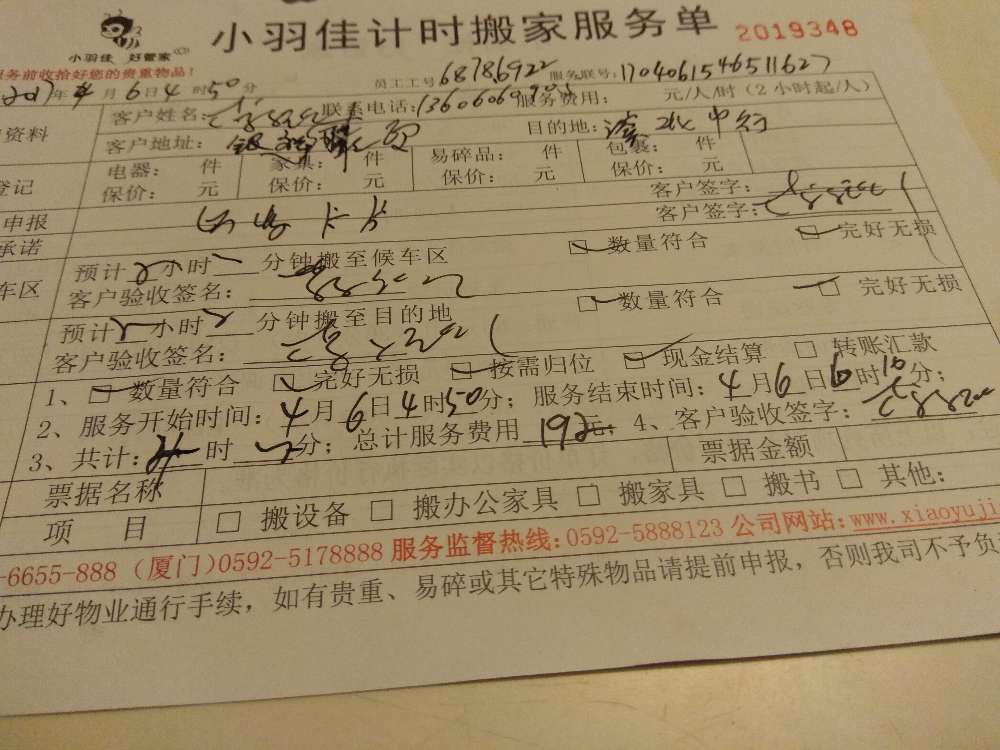 小羽佳计时搬家服务单 2019348
小羽佳 好管家
务前收拾好您的贵重物品！
员工工号 68786922 服务联号: 170406154651162
2017年4月6日4时50分
客户姓名: 联系电话: 服务费用: 元/人/时（2小时起/人）
资料
客户地址: 目的地: 中行
登记
电器: 件 家具: 件 易碎品: 件 包裹: 件
保价: 元 保价: 元 保价: 元 保价: 元
客户签字:
申报
客户签字:
承诺
预计 小时 分钟搬至候车区 数量符合 完好无损
车区
客户验收签名:
预计 小时 分钟搬至目的地 数量符合 完好无损
客户验收签名:
1、 数量符合 完好无损 按需归位 现金结算 转账汇款
2、服务开始时间: 4月6日4时50分; 服务结束时间: 4月6日6时10分;
3、共计: 时 分; 总计服务费用 192元; 4、客户验收签字:
票据名称 票据金额
项 目 搬设备 搬办公家具 搬家具 搬书 其他:
-6655-888（厦门）0592-5178888 服务监督热线: 0592-5888123 公司网站: www.xiaoyuji
办理好物业通行手续，如有贵重、易碎或其它特殊物品请提前申报，否则我司不予负